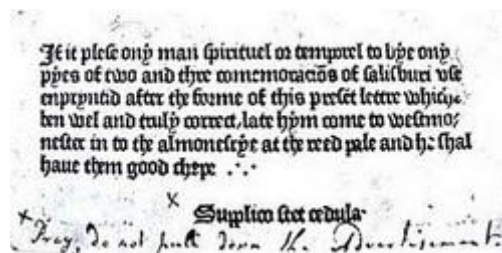 If it plese ony man spirituel or temporel to bye ony
pyes of two and thre comemoracios of salisburi vse
enpryntid after the forme of this preset lettre whiche
ben wel and truly correct, late hym come to westmo-
nester in to the almonesrye at the reed pale and he shal
haue them good chepe .·.
Supplico stet cedula
Pray, do not pull down the Advertisement